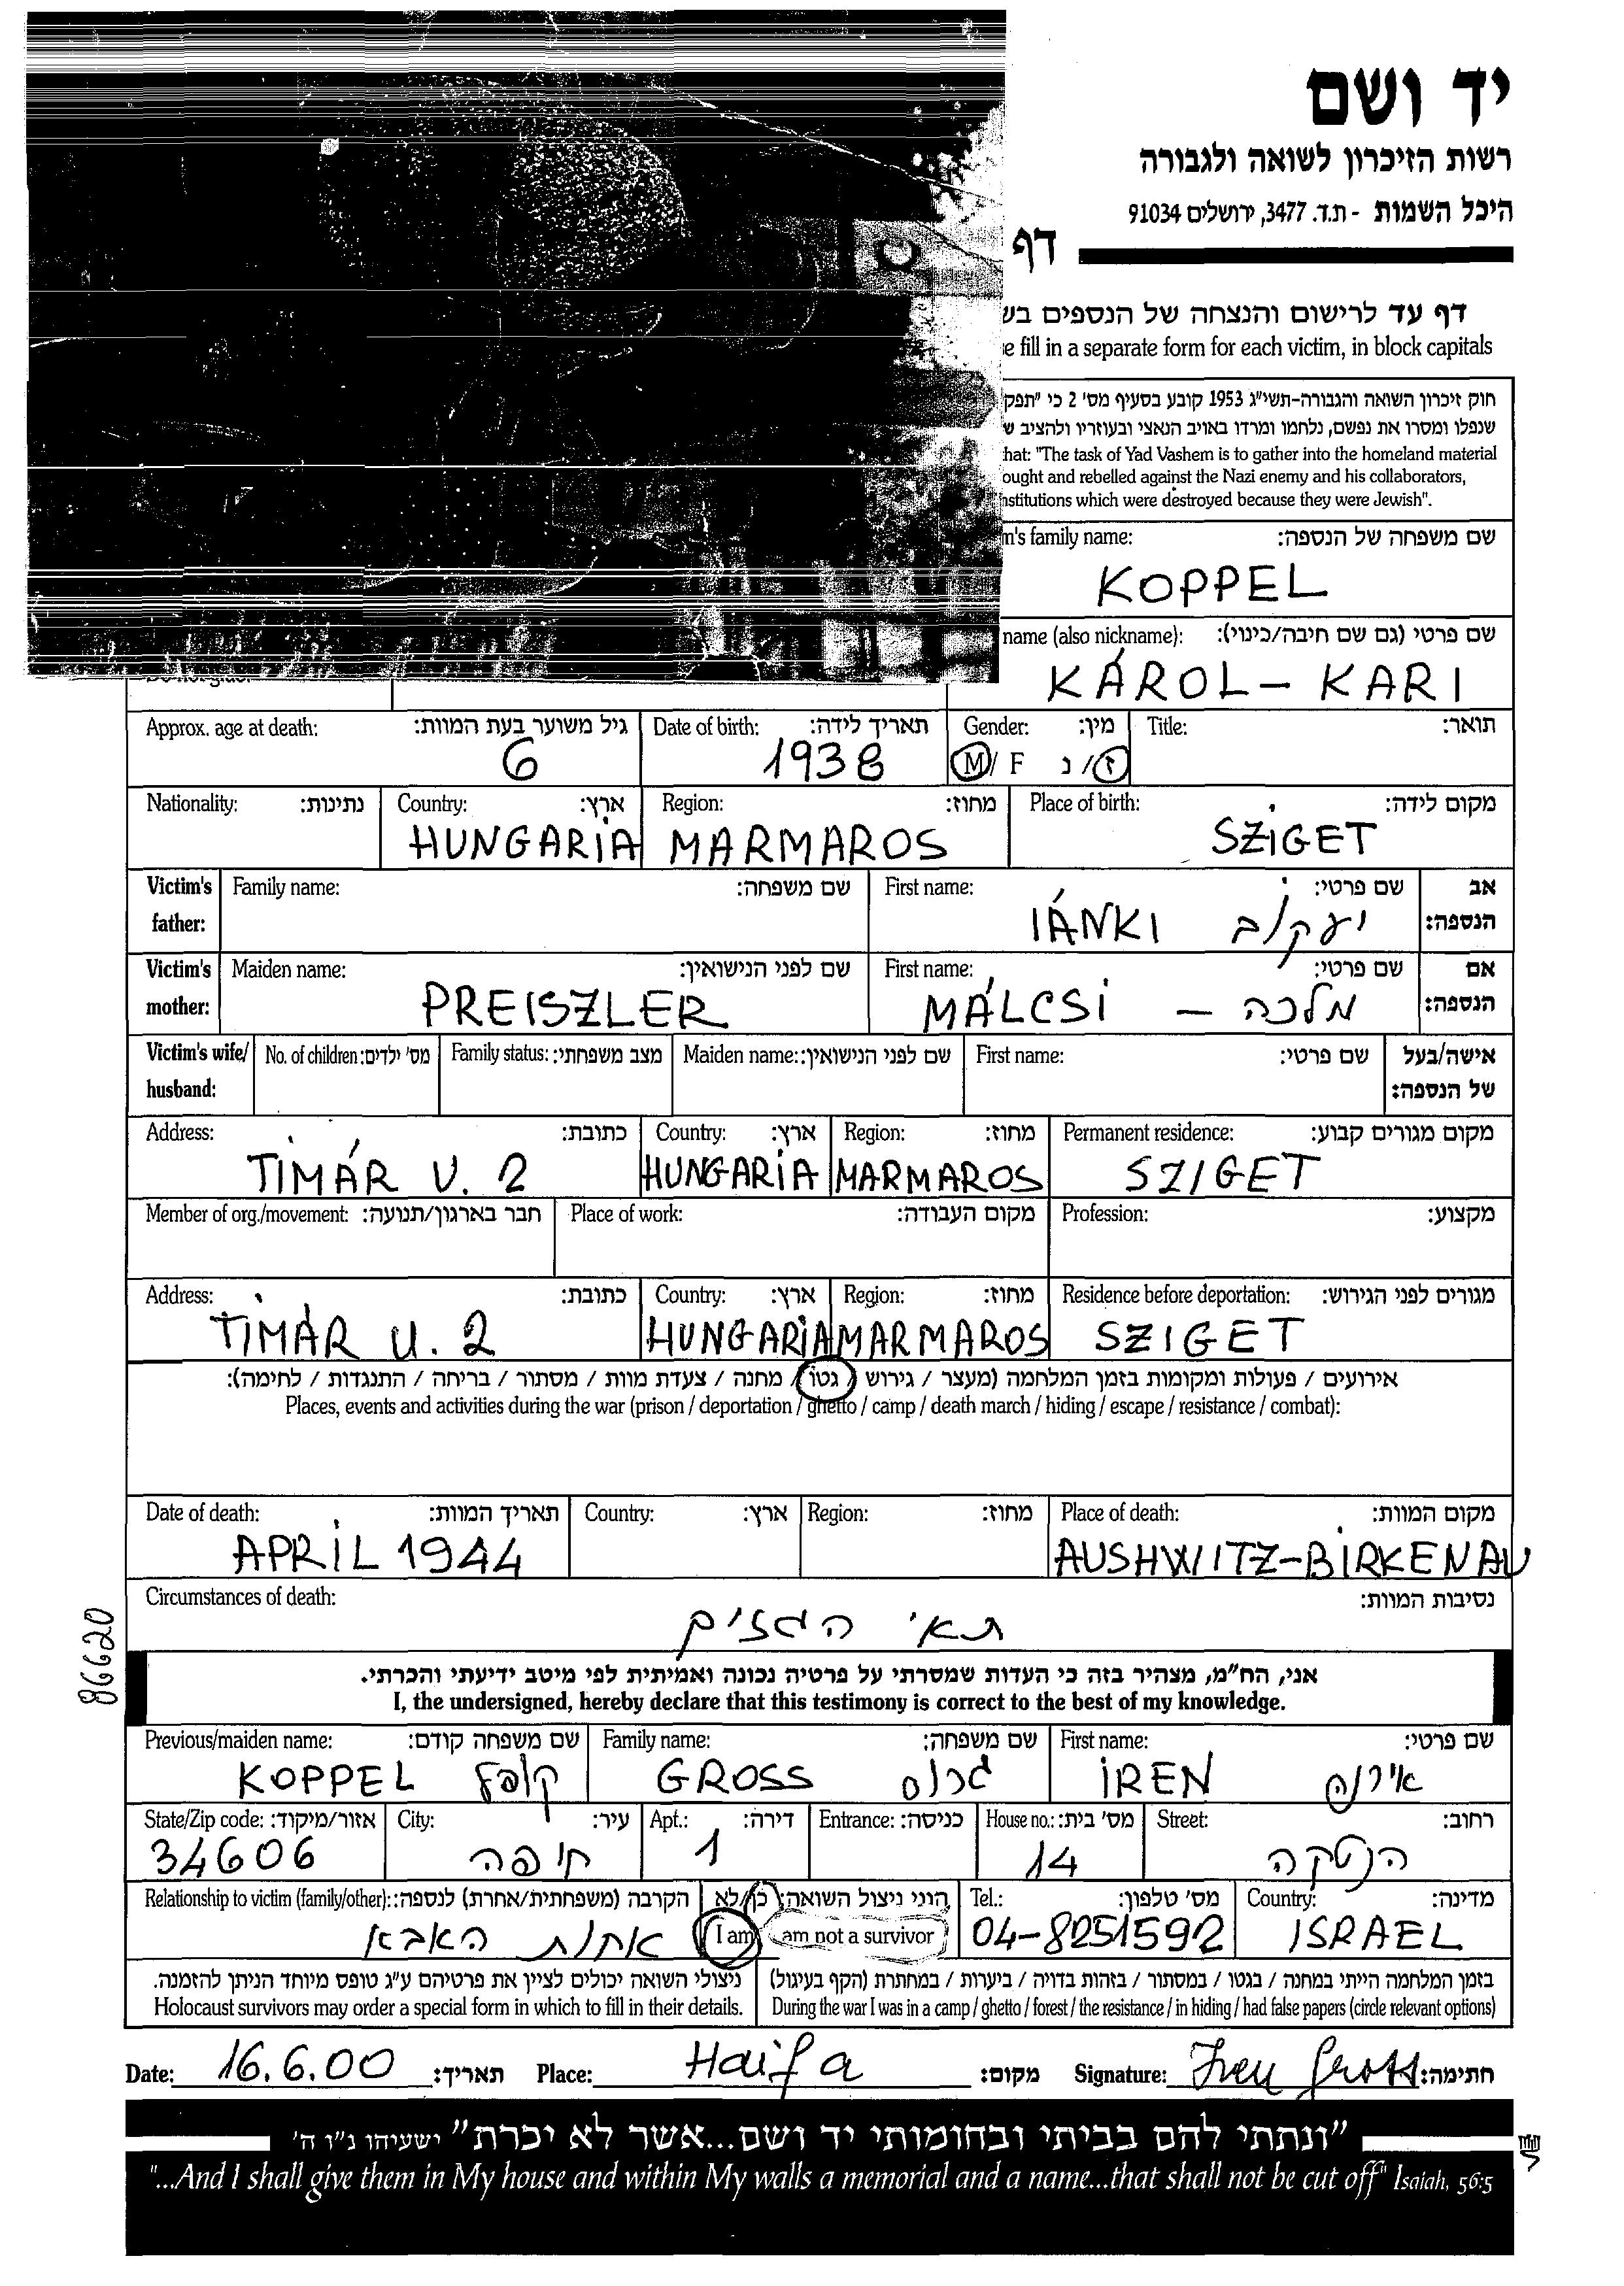 יד ושם
רשות הזיכרון לשואה ולגבורה
היכל השמות - ת.ד. 3477, ירושלים 91034
דף
דף עד לרישום והנצחה של הנספים
fill in a separate form for each victim, in block capitals
חוק זיכרון השואה והגבורה-תשי"ג 1953 קובע בסעיף מס' 2 כי
שנפלו ומסרו את נפשם, נלחמו ומרדו באויב הנאצי ובעוזריו ולהציב
"The task of Yad Vashem is to gather into the homeland material
and rebelled against the Nazi enemy and his collaborators,
which were destroyed because they were Jewish".
family name: שם משפחה של הנספה:
KOPPEL
name (also nickname): שם פרטי (גם שם חיבה/כינוי):
KÁROL - KARI
Approx. age at death: גיל משוער בעת המוות: Date of birth: תאריך לידה: Gender: מין: Title: תואר:
6 1938 M/ F ז/ נ
Nationality: נתינות: Country: ארץ: Region: מחוז: Place of birth: מקום לידה:
HUNGARIA MARMAROS SZIGET
Victim's father: Family name: שם משפחה: First name: שם פרטי: אב הנספה:
IÁNKI יעקוב
Victim's mother: Maiden name: שם לפני הנישואין: First name: שם פרטי: אם הנספה:
PREISZLER MÁLCSI - מלכה
Victim's wife/ husband: No. of children: מס' ילדים: Family status: מצב משפחתי: Maiden name: שם לפני הנישואין: First name: שם פרטי: אישה/בעל של הנספה:
Address: כתובת: Country: ארץ: Region: מחוז: Permanent residence: מקום מגורים קבוע:
TIMÁR U. 2 HUNGARIA MARMAROS SZIGET
Member of org./movement: חבר בארגון/תנועה: Place of work: מקום העבודה: Profession: מקצוע:
Address: כתובת: Country: ארץ: Region: מחוז: Residence before deportation: מגורים לפני הגירוש:
TIMÁR U. 2 HUNGARIA MARMAROS SZIGET
אירועים / פעולות ומקומות בזמן המלחמה (מעצר / גירוש / גטו / מחנה / צעדת מוות / מסתור / בריחה / התנגדות / לחימה):
Places, events and activities during the war (prison / deportation / ghetto / camp / death march / hiding / escape / resistance / combat):
Date of death: תאריך המוות: Country: ארץ: Region: מחוז: Place of death: מקום המוות:
APRIL 1944 AUSHWITZ-BIRKENAU
Circumstances of death: נסיבות המוות:
תאי הגזים
86620
אני, הח"מ, מצהיר בזה כי העדות שמסרתי על פרטיה נכונה ואמיתית לפי מיטב ידיעתי והכרתי.
I, the undersigned, hereby declare that this testimony is correct to the best of my knowledge.
Previous/maiden name: שם משפחה קודם: Family name: שם משפחה: First name: שם פרטי:
KOPPEL קופל GROSS גרוס IREN אירנה
State/Zip code: אזור/מיקוד: City: עיר: Apt.: דירה: Entrance: כניסה: House no.: מס' בית: Street: רחוב:
34606 חיפה 1 14 הנטקה
Relationship to victim (family/other): הקרבה (משפחתית/אחרת) לנספה: הנני ניצול השואה: כן/לא Tel.: מס' טלפון: Country: מדינה:
אחות האבא I am am not a survivor 04-8251592 ISRAEL
ניצולי השואה יכולים לציין את פרטיהם ע"ג טופס מיוחד הניתן להזמנה. בזמן המלחמה הייתי במחנה / בגטו / במסתור / בזהות בדויה / ביערות / במחתרת (הקף בעיגול)
Holocaust survivors may order a special form in which to fill in their details. During the war I was in a camp / ghetto / forest / the resistance / in hiding / had false papers (circle relevant options)
Date: 16.6.00 תאריך: Place: Haifa מקום: Signature: Iren Gross חתימה:
"ונתתי להם בביתי ובחומותי יד ושם...אשר לא יכרת" ישעיהו נ"ו ה'
"...And I shall give them in My house and within My walls a memorial and a name...that shall not be cut off" Isaiah, 56:5